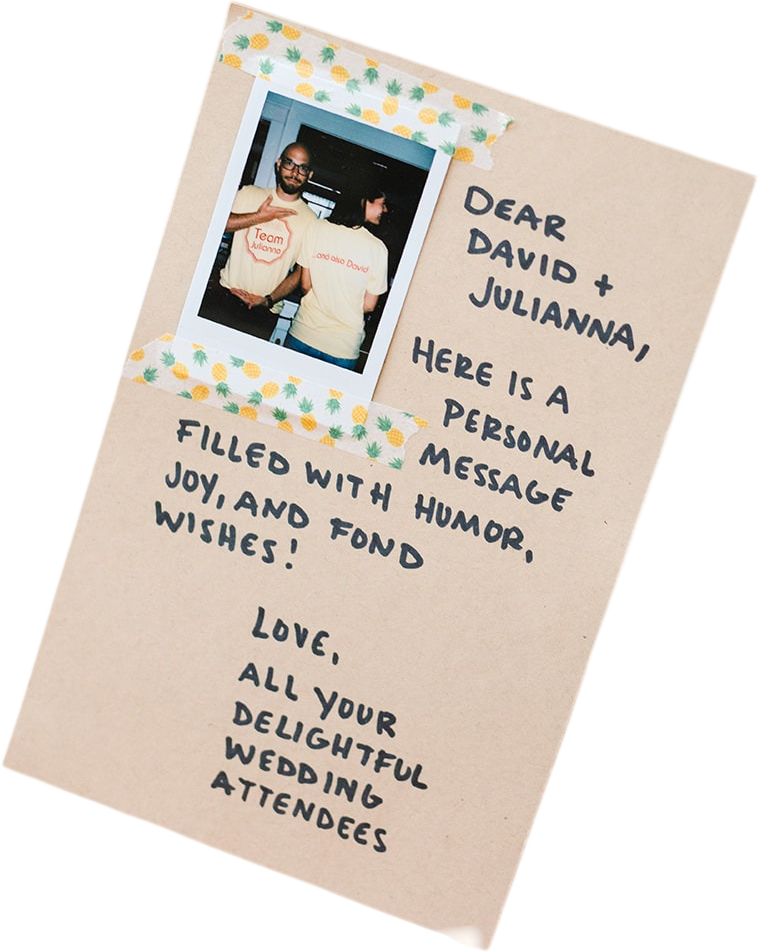 Team
Julianna
...and also David
DEAR
DAVID +
JULIANNA,
HERE IS A
PERSONAL
MESSAGE
FILLED WITH HUMOR,
JOY, AND FOND
WISHES!
LOVE,
ALL YOUR
DELIGHTFUL
WEDDING
ATTENDEES